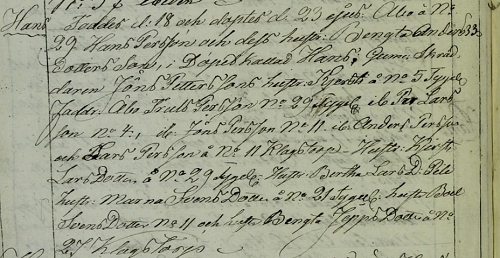 Hans
Föddes d: 18 och döptes d. 23 ejus. Åbo å No
29 Hans Persson och dess hustr: Bengta Anders 33.
Dotters Son, i Dopet kallad Hans; Gum: Skräd
daren Jöns Pettersons hustr: Kjersti å No 5 Tygel
Faddr: Abo Truls Persson No 29 Tygel: ib Per Lars
son No 4:, ib Jöns Persson No 11. ib Anders Persson
och Lars Persson å No 11 Klagstorp Hustr: Kjersti
Lars Dotter å No 29 Tygel: Hustr: Bertha Lars D. Pile
hustr: Marna Svens Dotter å No 21 Tygel: hustr Boel
Svens Dotter No 11 och hustr Bengta Jepps Dotter å No
27 Klagstorp